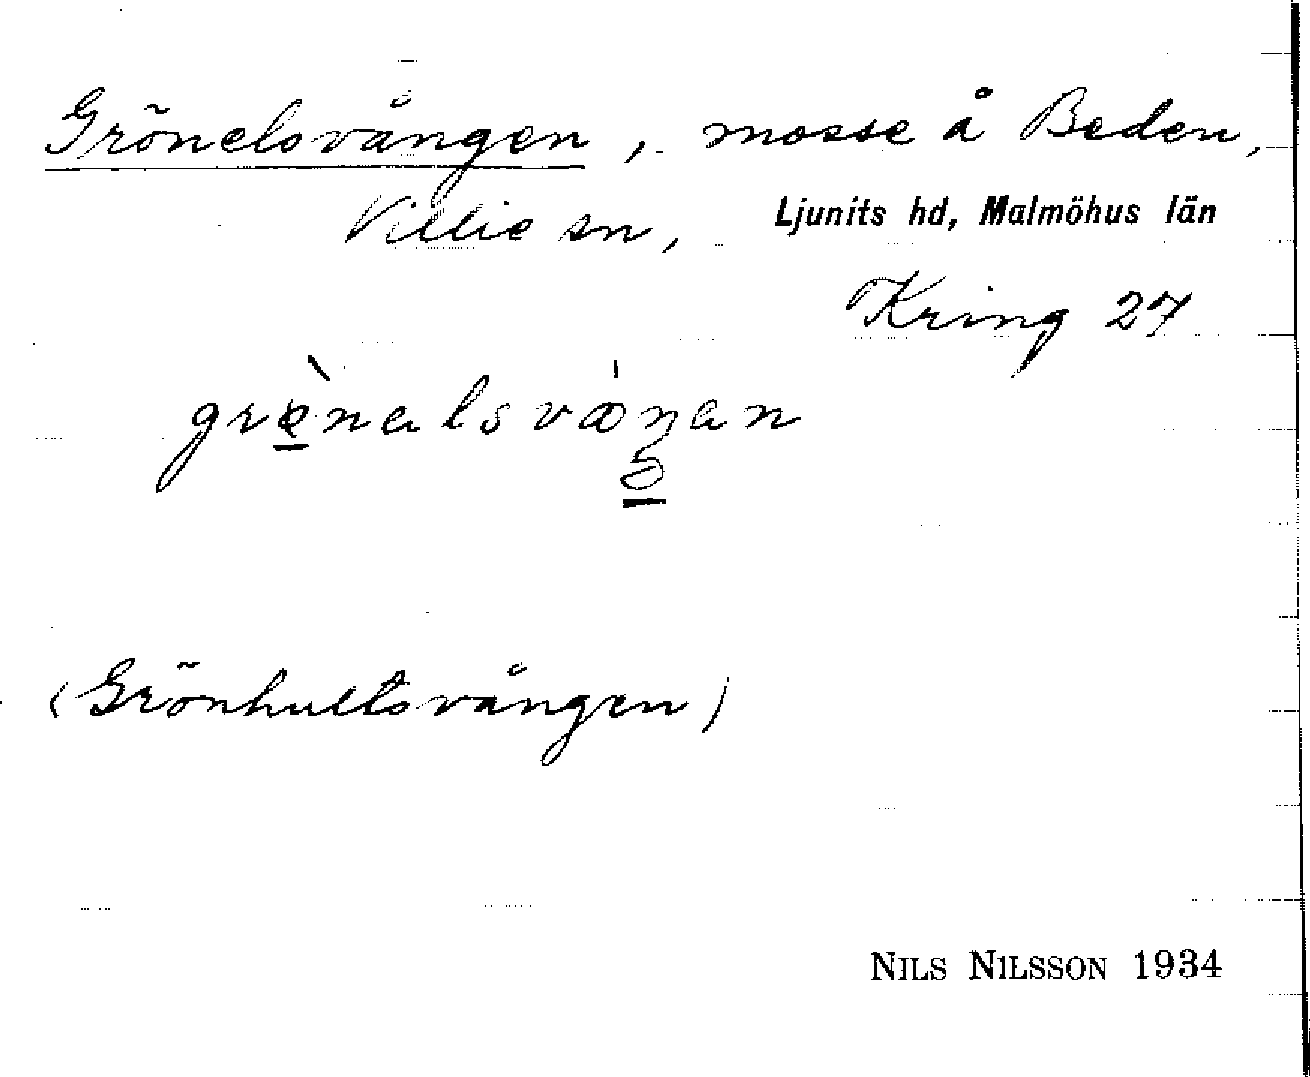 Grönelsvången, mosse å Beden,
Villie sn, Ljunits hd, Malmöhus län
Kring 27
(Grönhultsvången)
NILS NILSSON 1934